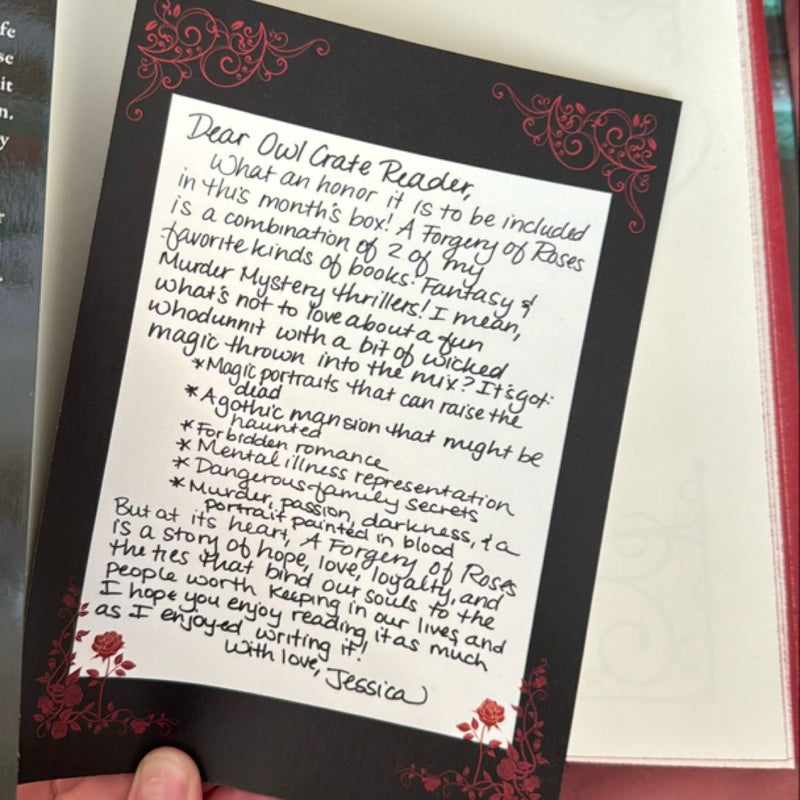 fe
se
it
n.
y
r
Dear Owl Crate Reader,
What an honor it is to be included
in this month's box! A Forgery of Roses
is a combination of 2 of my
favorite kinds of books: Fantasy &
Murder Mystery thrillers! I mean,
what's not to love about a fun
whodunnit with a bit of wicked
magic thrown into the mix? It's got:
*Magic portraits that can raise the
dead
*A gothic mansion that might be
haunted
*Forbidden romance
*Mental illness representation
*Dangerous family secrets
*Murder, passion, darkness, & a
portrait painted in blood
But at its heart, A Forgery of Roses
is a story of hope, love, loyalty, and
the ties that bind our souls to the
people worth keeping in our lives, and
I hope you enjoy reading it as much
as I enjoyed writing it!
With love, Jessica